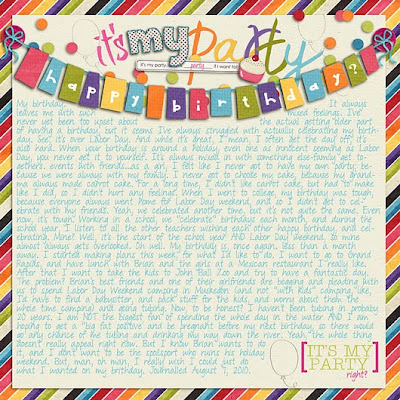 it's my party
It's my party party if I want to!
happy birthday?
My birthday. It always
leaves me with such mixed feelings. I've
never been too upset about the actual getting "older" part
of having a birthday, but it seems I've always struggled with actually celebrating my birth-
day. See, it's over Labor Day. And while it's great, I mean, I often get the day off, it's
also hard. When your birthday is around a holiday, even one as innocent seeming as Labor
Day, you never get it to yourself. It's always mixed in with something else-family get to-
gethers, events with friends...as a girl I felt like I never got to have my own party, be-
cause we were always with my family. I never got to choose my cake, because my grand-
ma always made carrot cake. For a long time, I didn't like carrot cake, but had to make
like I did, so I didn't hurt any feelings. When I went to college, my birthday was tough,
because everyone always went home for Labor Day weekend, and so I didn't get to cel-
ebrate with my friends. Yeah, we celebrated another time, but it's not quite the same. Even
now, it's tough. Working in a school, we "celebrate" birthdays each month, and during the
school year, I listen to all the other teachers wishing each other happy birthday, and cel-
ebrating. Mine? Well, it's the start of the school year AND Labor Day Weekend. So mine
almost always gets overlooked. Oh well. My birthday is, once again, less than a month
away. I started making plans this week for what I'd like to do. I want to go to Grand
Rapids, and have lunch with Brian and the girls at a Mexican restaurant I really like.
After that I want to take the kids to John Ball Zoo and try to have a fantastic day.
The problem? Brian's best friends and one of their girlfriends are begging and pleading with
us to spend Labor Day Weekend camping in Muskegon. (and not "with kids" camping, like,
I'd have to find a babysitter, and pack stuff for the kids, and worry about them the
whole time camping) and going tubing. Now, to be honest? I haven't been tubing in probably
20 years. I am NOT the biggest fan of spending the whole day in the water AND I am
hoping to get a "big fat positive" and be pregnant before my next birthday, so there would
be only chance of me tubing and drinking my way down the river. Yeah, the whole thing
doesn't really appeal right now. But I know Brian wants to do
it, and I don't want to be the spoilsport who ruins his holiday
weekend. But, man, oh man, I really wish I could just do
what I wanted on my birthday. Journalled August 7, 2010.
[IT'S MY
PARTY]
right?